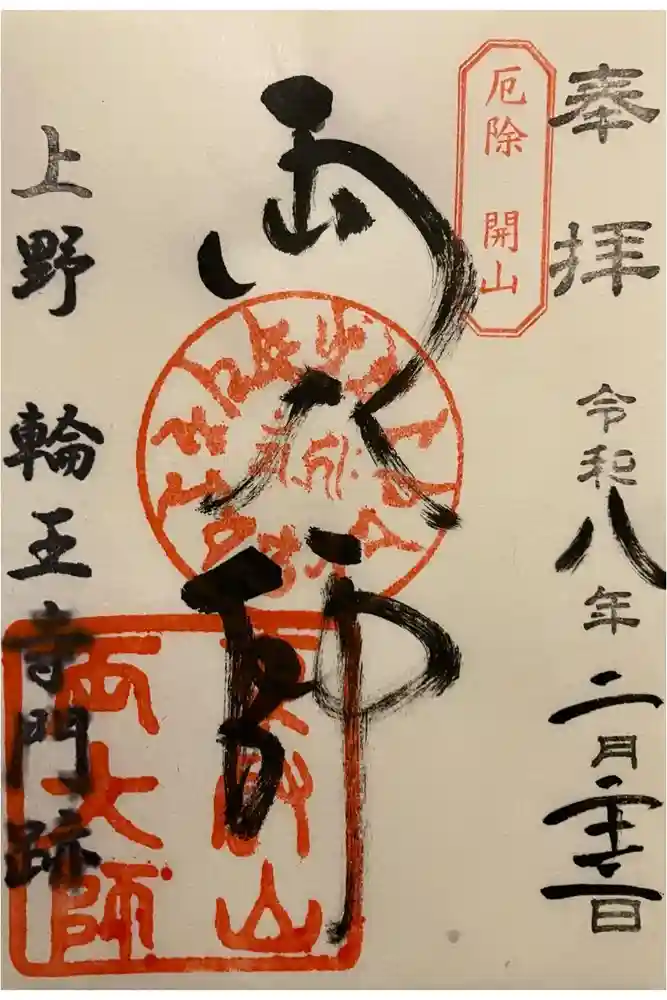 奉拝
令和八年二月
日
厄除 開山
両大師
東叡山
両大師
上野 輪王寺門跡